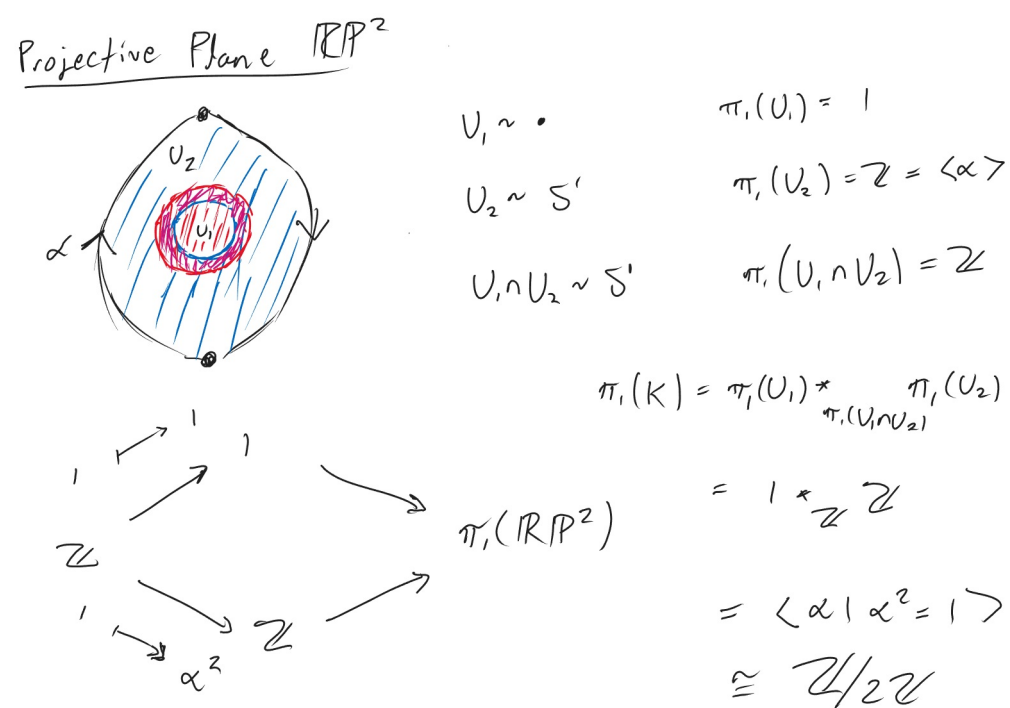 Projective Plane ℝℙ²
U₂
U₁
α
U₁ ~ •
U₂ ~ S¹
U₁∩U₂ ~ S¹
π₁(U₁) = 1
π₁(U₂) = ℤ = <α>
π₁(U₁∩U₂) = ℤ
π₁(K) = π₁(U₁) *_π₁(U₁∩U₂) π₁(U₂)
= 1 *_ℤ ℤ
= <α | α² = 1>
≅ ℤ/2ℤ
1 ↦ 1
1
ℤ
π₁(ℝℙ²)
1 ↦ α²
ℤ